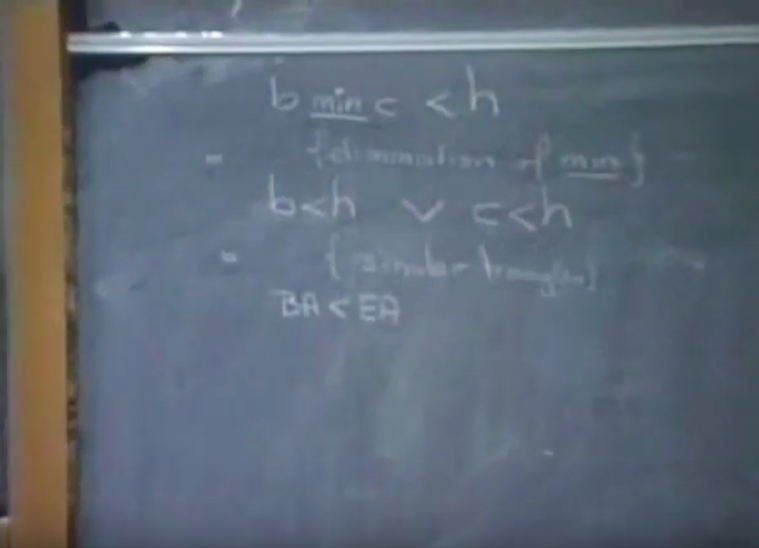 b min c < h
= {elimination of min}
b<h ∨ c<h
= {similar triangles}
BA < EA